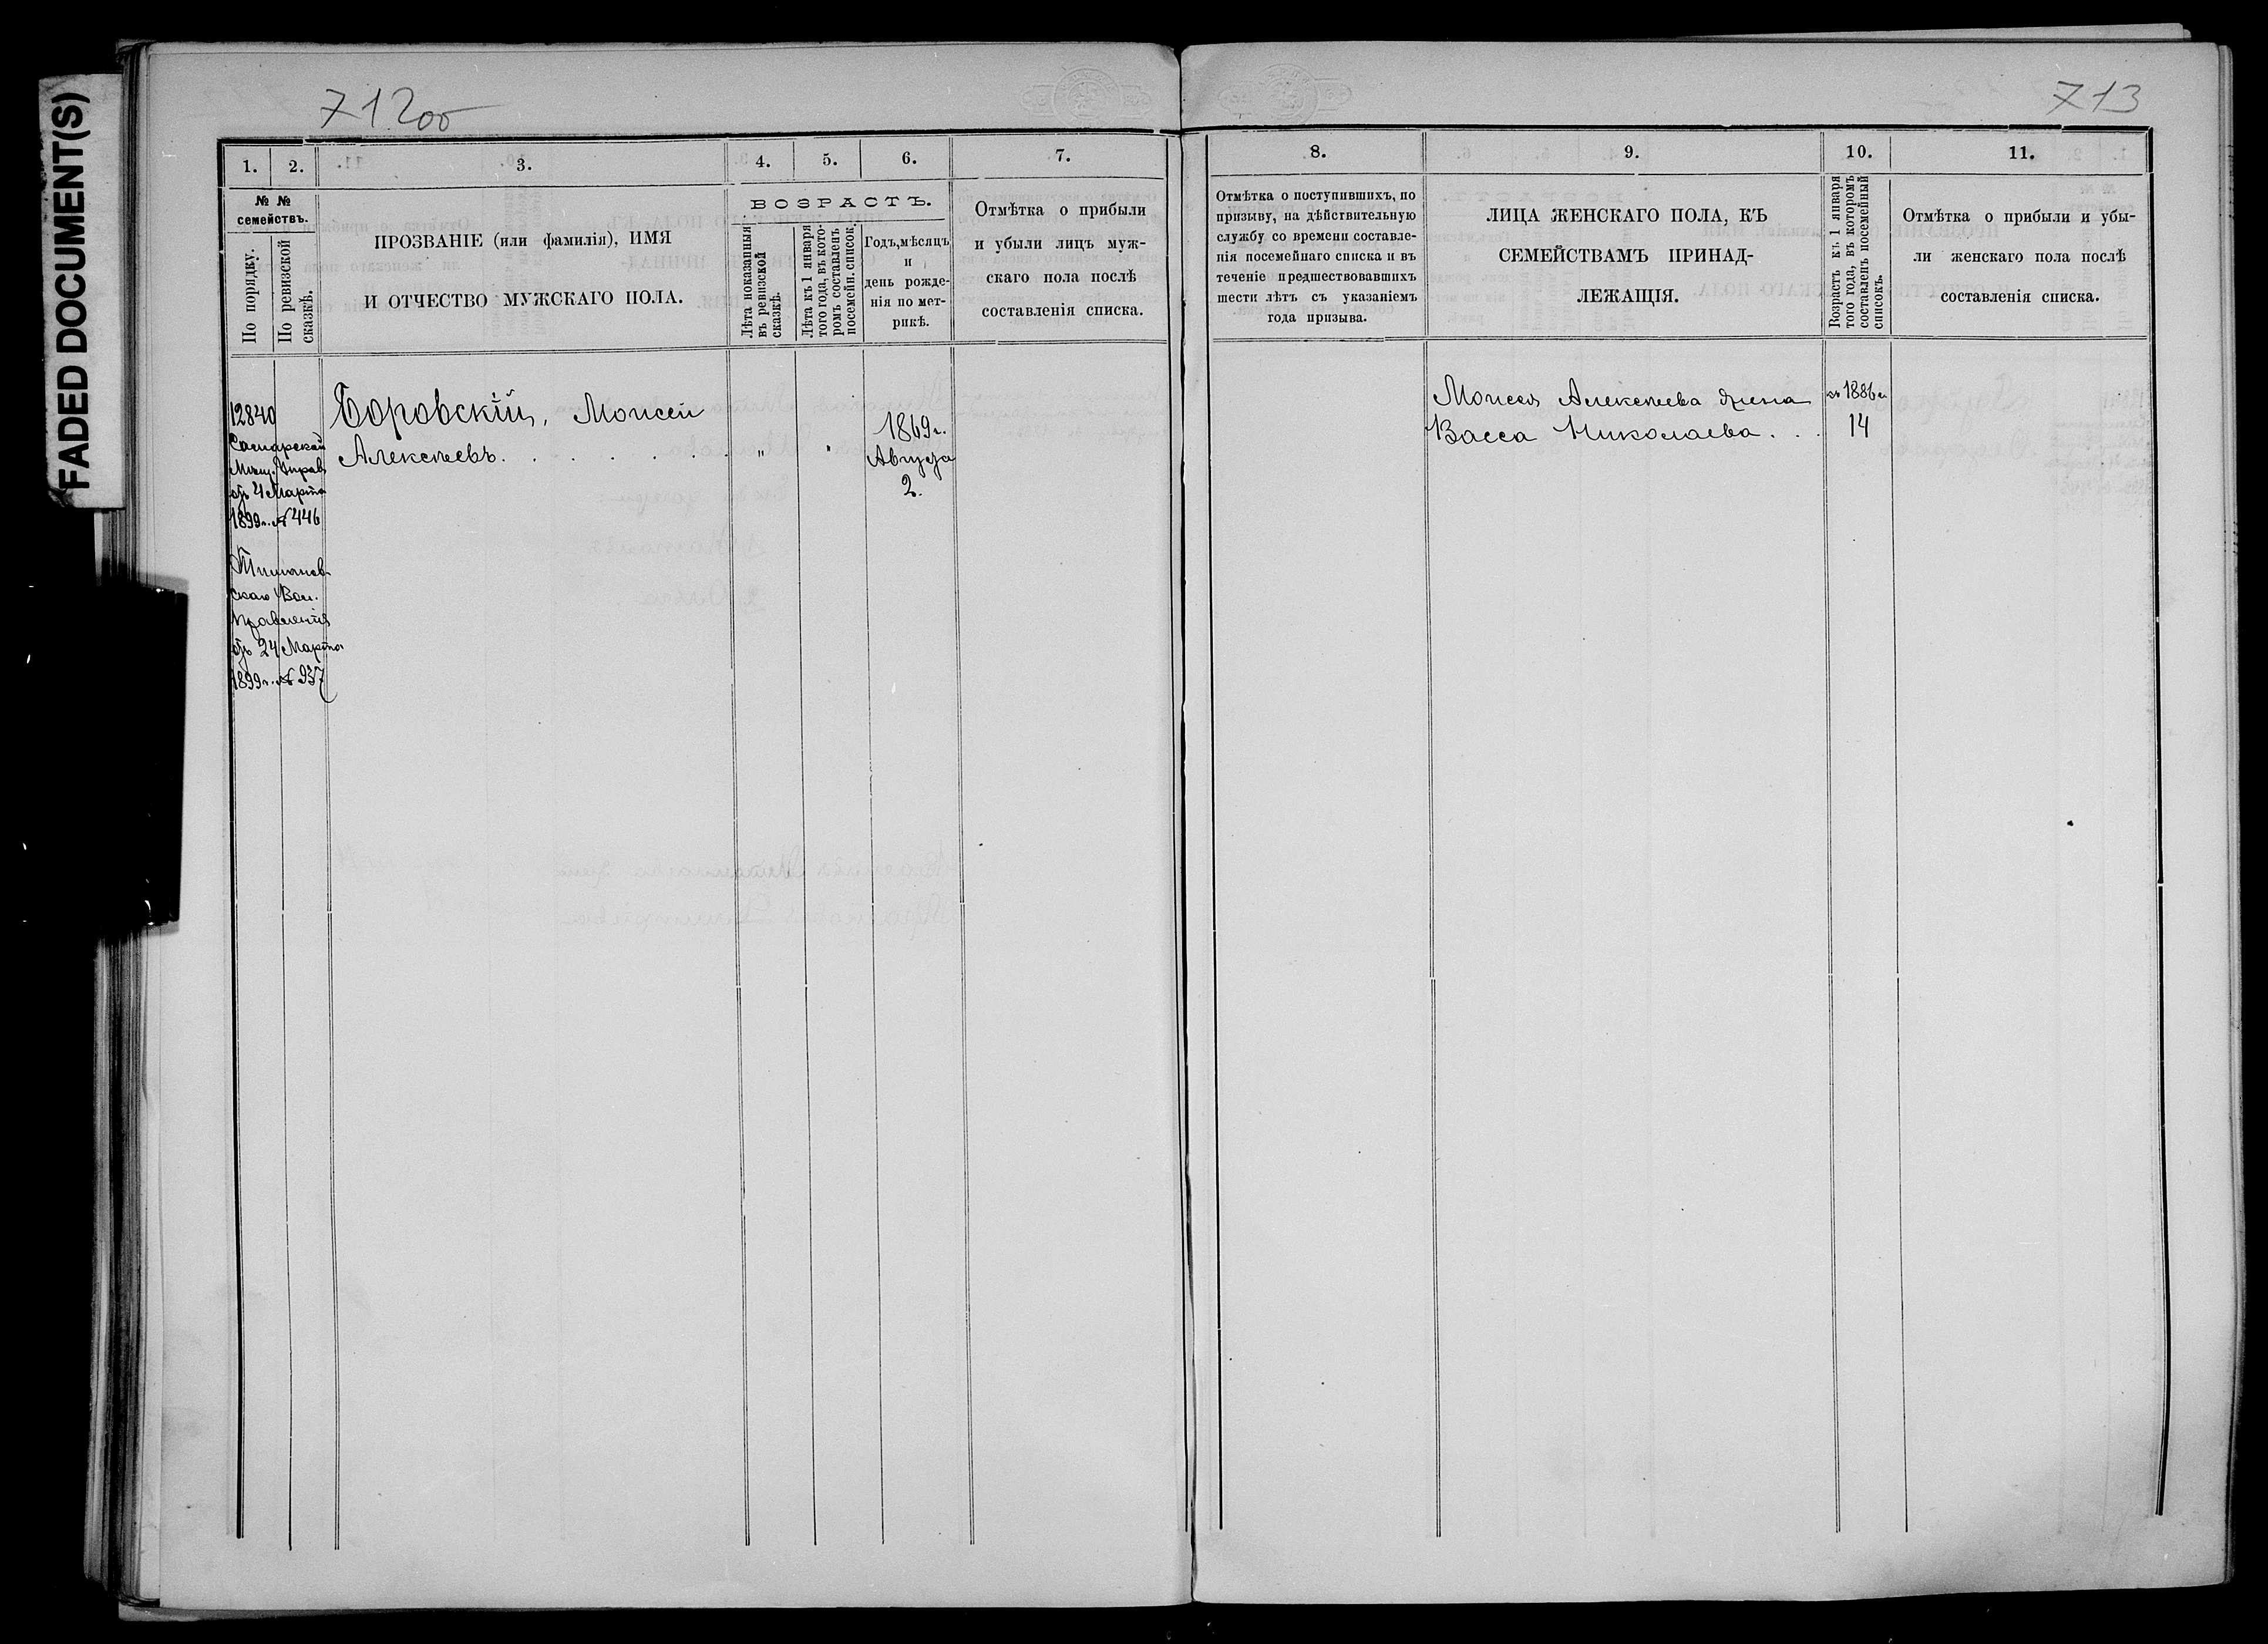 FADED DOCUMENT(S)
712об
713
1.
2.
3.
4.
5.
6.
7.
№ №
семействъ.
По порядку.
По ревизской
сказкѣ.
ПРОЗВАНІЕ (или фамилія), ИМЯ
И ОТЧЕСТВО МУЖСКАГО ПОЛА.
ВОЗРАСТЪ.
Лѣта показанныя
въ ревизской
сказкѣ.
Лѣта къ 1 января
того года, въ кото-
ромъ составленъ
посемейн. список.
Годъ, мѣсяцъ
и
день рожде-
нія по мет-
рикѣ.
Отмѣтка о прибыли
и убыли лицъ муж-
скаго пола послѣ
составленія списка.
12840
Самарской
Мѣщ. Управ.
отъ 4 Марта
1899г. № 446
Вол.
Правленія
отъ 24 Марта
1899г. № 937
Боровскій, Моисей
Алексѣевъ. . . . . . . "
1869г.
Августа
2.
8.
9.
10.
11.
Отмѣтка о поступившихъ, по
призыву, на дѣйствительную
службу со времени составле-
нія посемейнаго списка и въ
теченіе предшествовавшихъ
шести лѣтъ съ указаніемъ
года призыва.
ЛИЦА ЖЕНСКАГО ПОЛА, КЪ
СЕМЕЙСТВАМЪ ПРИНАД-
ЛЕЖАЩІЯ.
Возрастъ къ 1 января
того года, въ которомъ
составленъ посемейный
списокъ.
Отмѣтка о прибыли и убы-
ли женскаго пола послѣ
составленія списка.
Моисея Алексѣева жена
Васса Николаева. . .
въ 1886г.
14